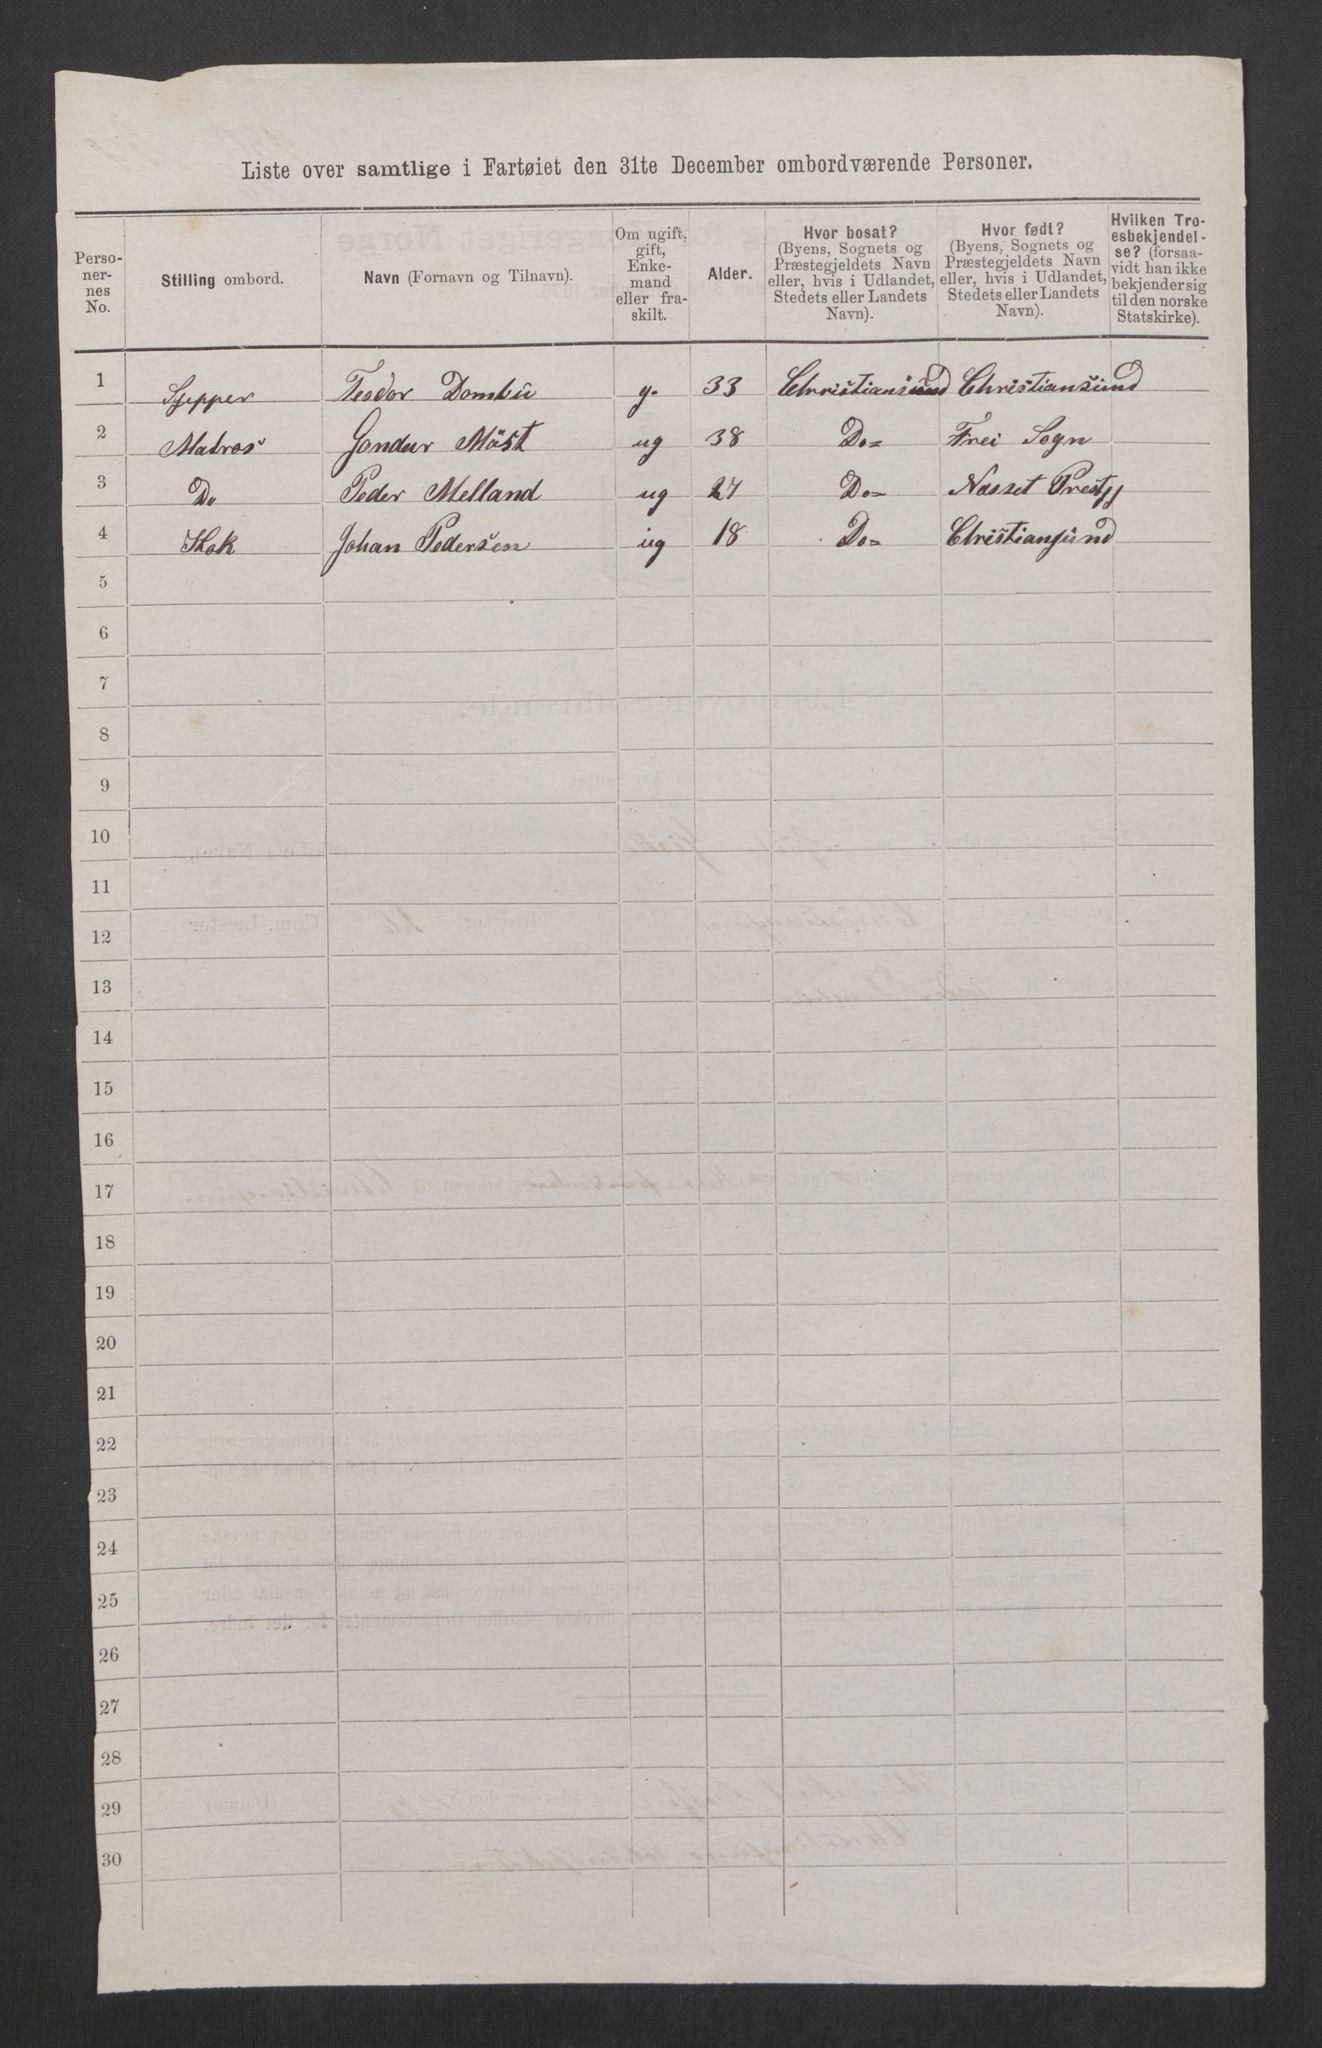 Liste over samtlige i Fartøiet den 31te December ombordværende Personer.
Perso-
ner-
nes
No.
Stilling ombord.
Navn (Fornavn og Tilnavn).
Om ugift,
gift,
Enke-
mand
eller fra-
skilt.
Alder.
Hvor bosat?
(Byens, Sognets og
Præstegjeldets Navn
eller, hvis i Udlandet,
Stedets eller Landets
Navn).
Hvor født?
(Byens, Sognets og
Præstegjeldets Navn
eller, hvis i Udlandet,
Stedets eller Landets
Navn).
Hvilken Tro-
esbekjendel-
se? (forsaa-
vidt han ikke
bekjender sig
til den norske
Statskirke).
1 Sjepper Teodor Dombu g. 33 Christiansund Christiansund
2 Matros Gondur Mäst ug 38 Do= Frei Sogn
3 Do Peder Melland ug 27 Do= Nasset Prestgj
4 Kok Johan Pedersen ug 18 Do= Christiansund
5
6
7
8
9
10
11
12
13
14
15
16
17
18
19
20
21
22
23
24
25
26
27
28
29
30